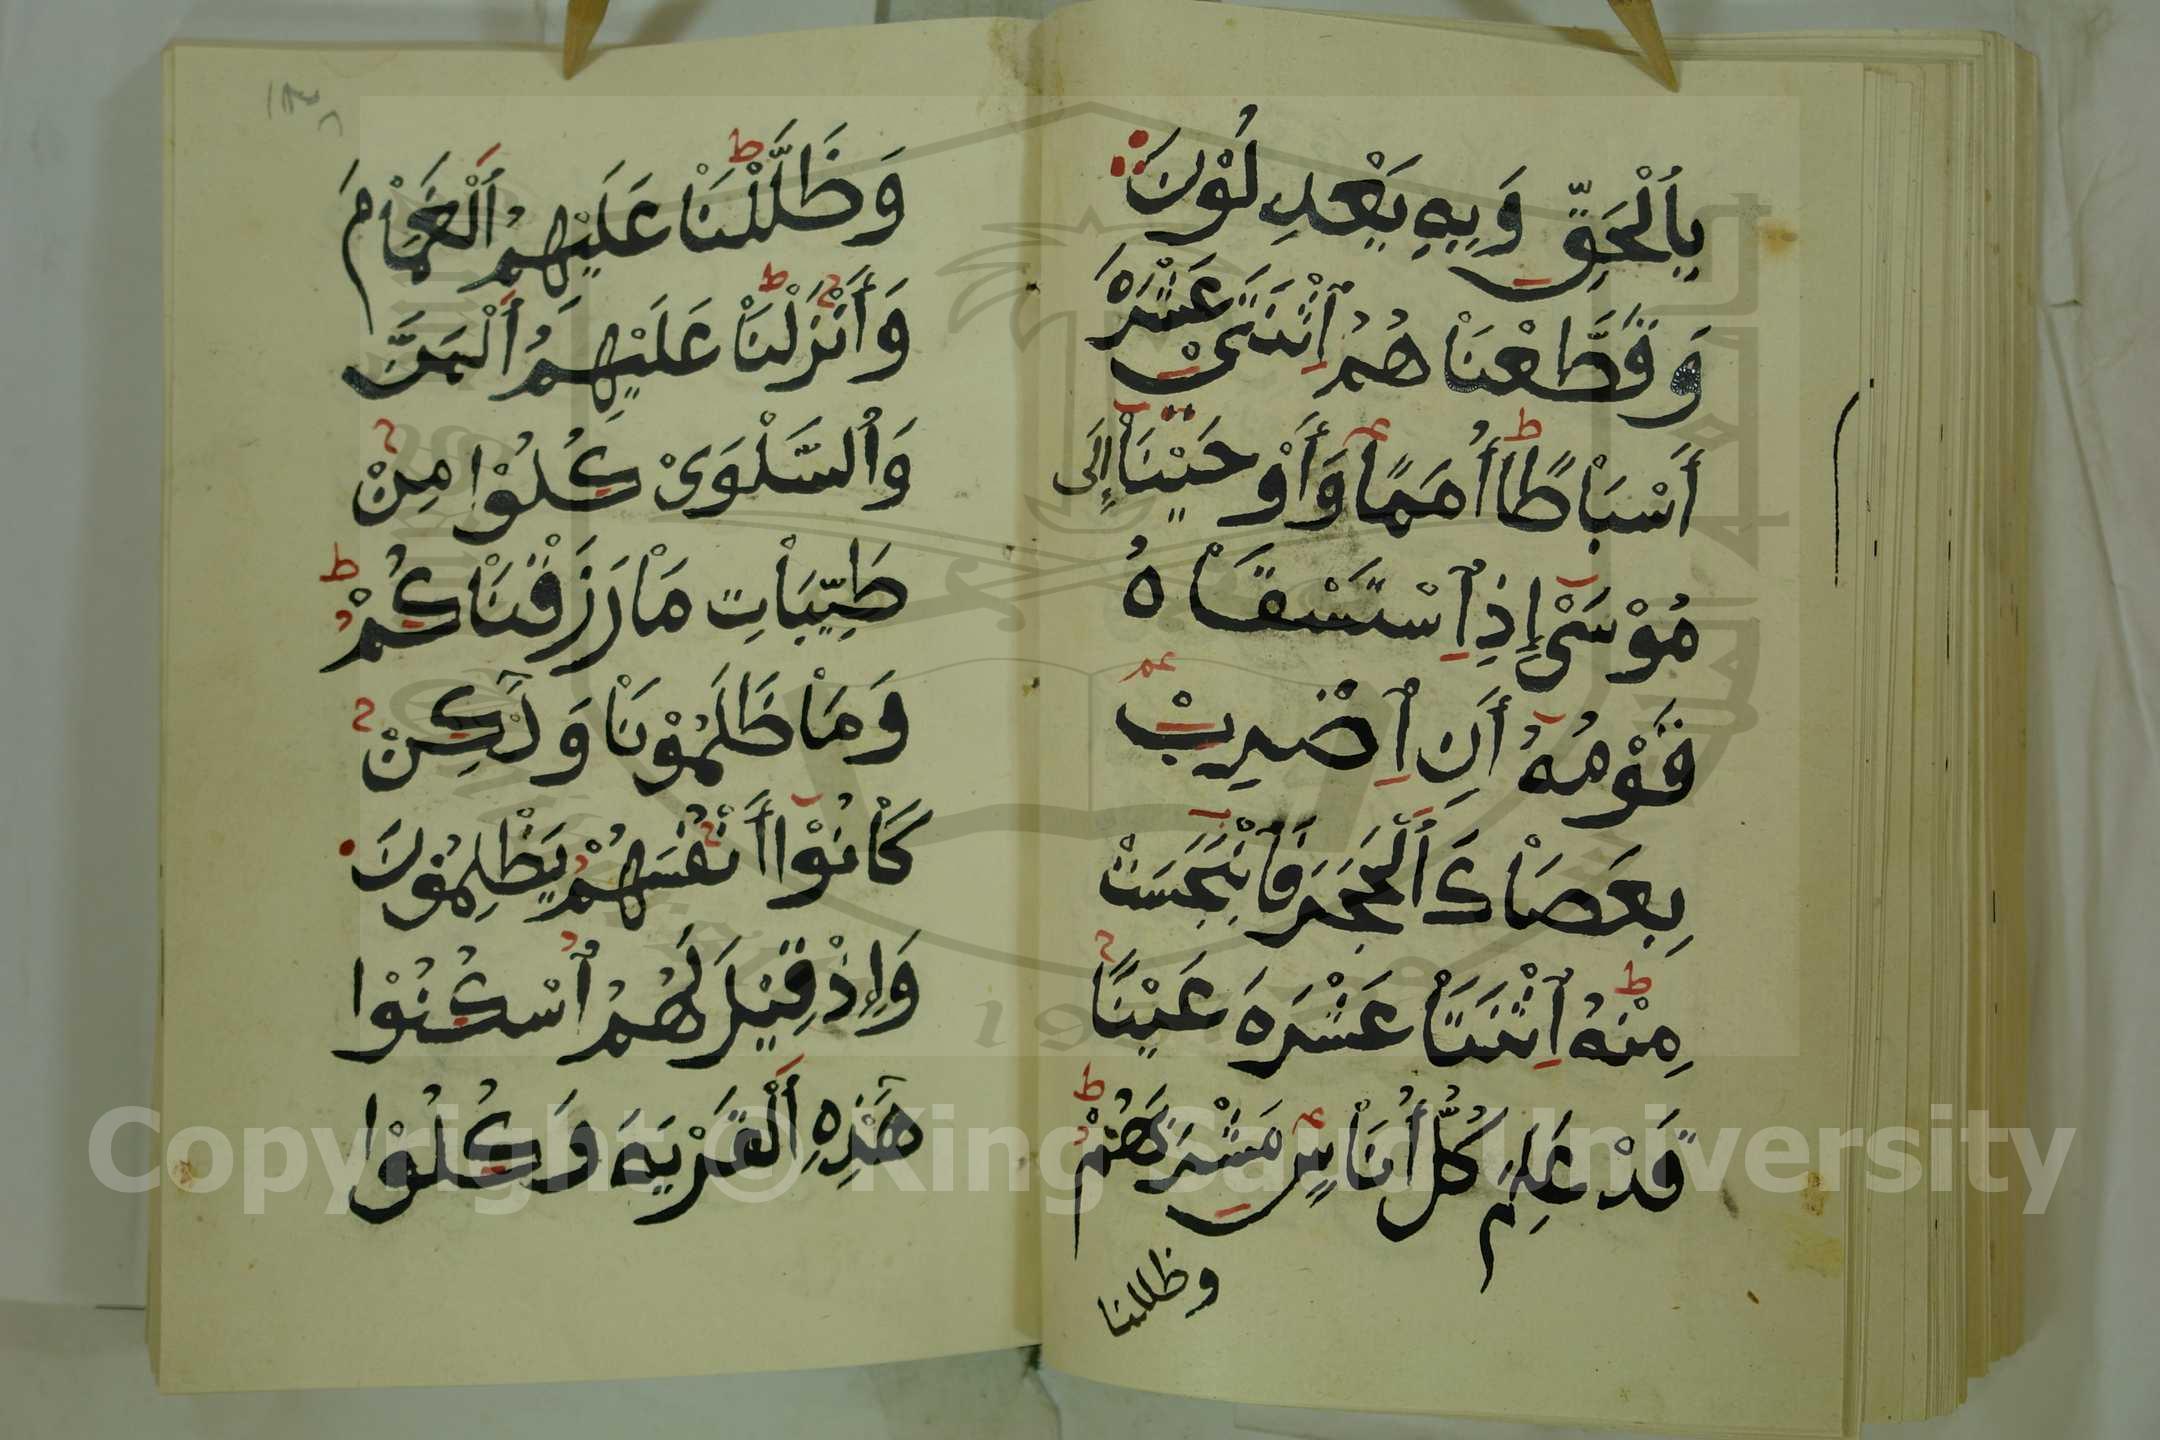 بِالْحَقِّ وَبِهِ يَعْدِلُوْنَ
وَقَطَّعْنَاهُمُ اثْنَتَيْ عَشْرَةَ
أَسْبَاطًا أُمَمًا وَأَوْحَيْنَا إِلَى
مُوْسَىْ إِذِ اِسْتَسْقَاهُ
قَوْمُهُ أَنِ اِضْرِبْ
بِعَصَاكَ الْحَجَرَ فَانْبَجَسَتْ
مِنْهُ اِثْنَتَا عَشْرَةَ عَيْنًا
قَدْ عَلِمَ كُلُّ أُنَاسٍ مَشْرَبَهُمْ
وظللنا
وَظَلَّلْنَا عَلَيْهِمُ الْغَمَامَ
وَأَنْزَلْنَا عَلَيْهِمُ الْمَنَّ
وَالسَّلْوَىْ كُلُوْا مِنْ
طَيِّبَاتِ مَا رَزَقْنَاكُمْ
وَمَا ظَلَمُوْنَا وَلَٰكِنْ
كَانُوْا أَنْفُسَهُمْ يَظْلِمُوْنَ
وَإِذْ قِيْلَ لَهُمُ اسْكُنُوْا
هَٰذِهِ الْقَرْيَةَ وَكُلُوْا
Copyright © King Saud University